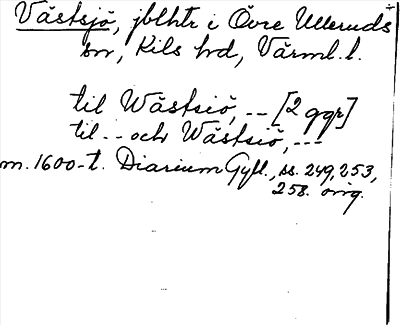 Västsjö, jblhtr i Övre Ulleruds
sn, Kils hd, Värml. l.
til Wästsiö, -- [2 ggr]
til -- och Wästsiö, ---
m. 1600-t. Diarium Gyll., ss. 249, 253,
258. orig.